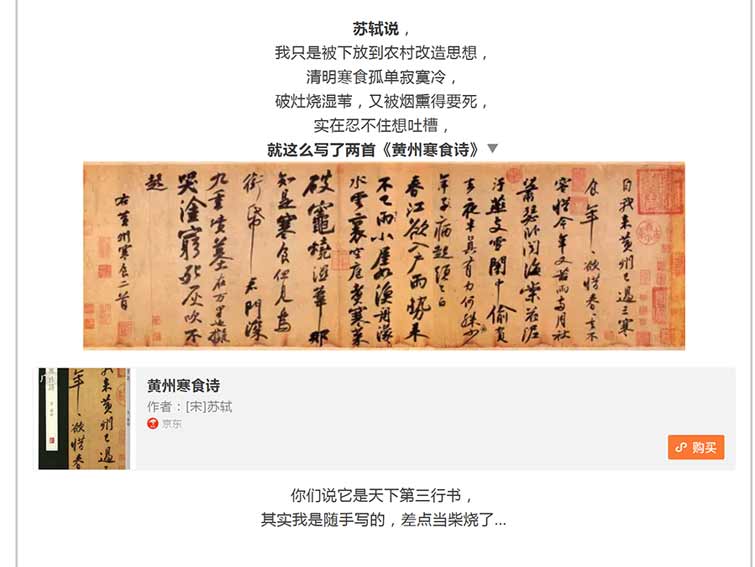 苏轼说，
我只是被下放到农村改造思想，
清明寒食孤单寂寞冷，
破灶烧湿苇，又被烟熏得要死，
实在忍不住想吐槽，
就这么写了两首《黄州寒食诗》▼
自我来黄州已過三寒
食年年欲惜春春去不
容惜今年又苦雨兩月秋
蕭瑟卧聞海棠花泥
汙燕支雪闇中偷負
去夜半真有力何殊少
年子病起頭已白
春江欲入户雨勢来
不已雨小屋如漁舟濛
水雲裏空庖煮寒菜
破竈燒濕葦那
知是寒食但見烏
銜帋君門深
九重墳墓在万里也擬
哭塗窮死灰吹不
起
右黄州寒食二首
黄州寒食诗
作者：[宋]苏轼
京东
购买
你们说它是天下第三行书，
其实我是随手写的，差点当柴烧了...